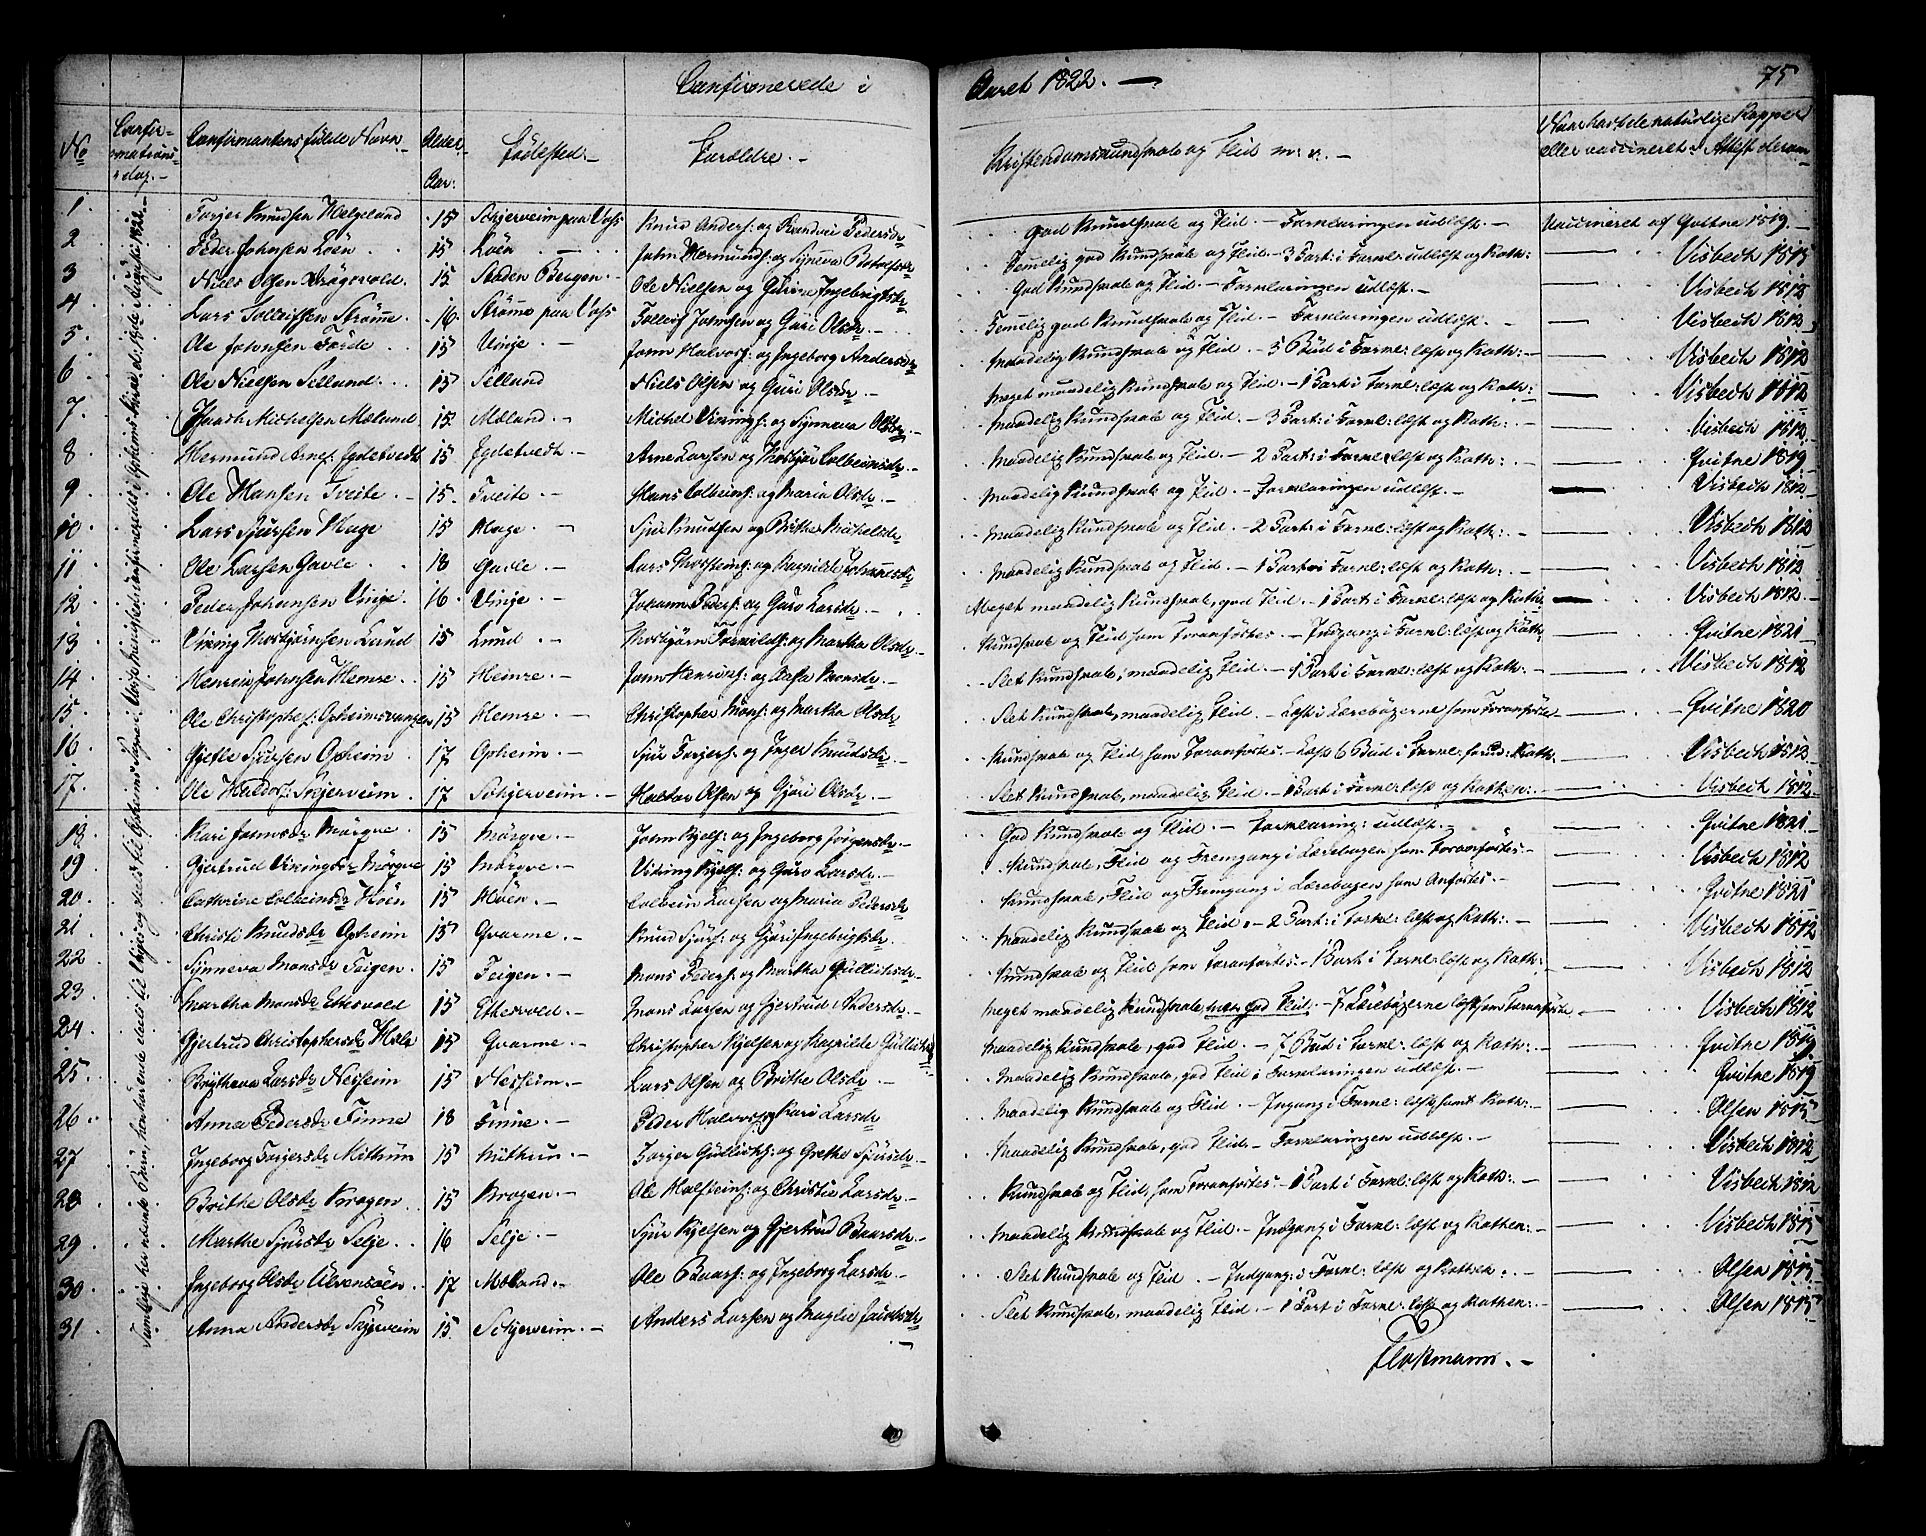 Confirmerede i Aaret 1822. —
75
No
Confirmations dag. —
Confirmantens fulde Navn
Alder Aar:
Fødested. —
Forældre. —
Christendomskundskab og Flid m: v. —
Naar havt de naturlige Kopper eller vaccineret &
1. Torjer Knudsen Helgeland 15 Schjerveim paa Voss Knud Anders: og Randvei Pedersdr God Kundskab og Flid. — Forklaringen udlæst. — Vaccineret af Qvitne 1819. —
2 Peder Johnsen Løen 15 Løen John Hermunds: og Synneva Botolfsdr Temmelig god Kundskab og Flid — 3 Part: i Forkl: udlæst og Kath: Visbech 1815
3 Niels Olsen 15 Staden Bergen. Ole Nielsen og Gurine Ingebrigtsdr God Kundskab og Flid. — Forklaringen udlæst. — Visbech 1812
4 Lars Tolleifsen Strømme 16 Strømme paa Voss Tolleif Johnsen og Guri Olsdr. — Temmelig god Kundskab og Flid. — Forklaringen udlæst. — Visbech 1812
5. Ole Johnsen Førde 15 Vinje. — John Halvors: og Ingeborg Andersdr Maadelig Kundskab og Flid. — 5 Bud i Forkl: læst og Kath: — Visbech 1812
6. Ole Nielsen Selland. 15 Selland Niels Olsen og Guri Olsdr. — Meget maadelig Kundskab og Flid. — 1 Part i Forkl: læst og Kath: Visbech 1812
7. Jacob Michelsen Møland 15. Møland. — Michel Vikings: og Synneva Olsdr. — Maadelig Kundskab og Flid. — 3 Part: i Forkl: læst og Kath: Visbech 1812
8 Hermund Arnes: Egdetvedt 15 Egdetvedt — Arne Larsen og Thorbjør Colbeinsdr. — Maadelig Kundskab og Flid. — 2 Part: i Forkl: læst og Kath: Qvitne 1819
9 Ole Hansen Tveite. — 15. Tveite. — Hans Colbeins: og Maria Olsdr. — Maadelig Kundskab og Flid. — Forklaringen udlæst. — Visbech 1812
10 Lars Sjursen Hage 15 Hage. — Sjur Knudsen og Brithe Michelsdr Maadelig Kundskab og Flid. — 2 Part: i Forkl: læst og Kath: — Visbech 1813
11 Ole Larsen Gavle 18 Gavle — Lars Thorsteins: og Ragnilde Johannesdr Maadelig Kundskab og Flid. — 1 Part i Forkl: læst og Kath: — Visbech 1813
12 Peder Johansen Vinje. 16. Vinje. — Johan Peders: og Guro Larsdr. — Meget maadelig Kundskab, god Flid. — 1 Part: i Forkl: læst og Kath: Visbech 1812
13 Viking Thorbjørnsen Lund 15 Lund. — Thorbjørn Torkilds: og Martha Olsdr. — Kundskab og Flid som Foranførtes. — Indgang i Forkl: læst og Kath: Qvitne 1821
14 Henrik Johnsen Hemre 15 Hemre. — John Henriks: og Aasa Monsdr. — Slet Kundskab, maadelig Flid. — 1 Part i Forkl: læst og Kath: — Visbech 1812
15. Ole Christophs: Opheimsvangen 15 Hemre. — Christopher Mons: og Martha Olsdr Slet Kundskab, maadelig Flid. — Læst i Lærebøgerne som Foranførte — Qvitne 1820
16. Gjetle Sjursen Opheim 17 Opheim. — Sjur Torjers: og Inger Knudsdr. Kundskab og Flid som Foranførtes. — Læst 6 Bud i Forkl: Kath: Visbech 1813
17. Ole Haldors: Skjerveim. 17 Schjerveim. — Haldor Olsen og Gjøri Olsdr. — Slet Kundskab, maadelig Flid. — 1 Part i Forkl: læst og Kathen: — Visbech 1812
18. Kari Johnsdr Mørqve. 15 Mørqve. — John Kjels: og Ingeborg Jørgensdr. — God Kundskab og Flid. — Forklaring: udlæst. — Qvitne 1821
19. Gjertrud Vikingsdr Mørqve 15 Mørqve. — Viking Kjels: og Guro Larsdr. — Kundskab, Flid og Fremgang i Lærebogen som Foranførtes — Visbech 1812
20. Cathrine Colbeinsdr Høen 15 Høen. — Colbein Larsen og Maria Pedersdr Kundskab, Flid og Fremgang i Lærebogen som Anførtes. — Qvitne 1821
21. Christi Knudsdr Opheim 15 Qvarme. — Knud Sjurs: og Gjøri Ingebrigtsdr. Maadelig Kundskab og Flid. — 2 Part: i Forkl: læst og Kath: — Visbech 1812
22. Synneva Monsdr Teigen. 15 Teigen. — Mons Peders: og Martha Gullichsdr. — Kundskab og Flid som Foranførtes — 1 Part i Forkl: læst og Kath: Visbech 1812
23. Martha Monsdr Ettesvold 15 Ettesvold. — Mons Larsen og Gjertrud Andersdr. — Meget maadelig Kundskab, men god Flid. — I Lærebøgerne læst som Foranførte. Visbech 1812
24. Gjertrud Christophersdr 15 Qvarme. — Christopher Kjelsen og Ragnilde Maadelig Kundskab, god Flid. — 7 Bud i Forkl: læst og Kath: — Qvitne 1819
25. Brytheva Larsdr Nesheim 15 Nesheim. — Lars Olsen og Brithe Olsdr. — Maadelig Kundskab, god Flid. — Forklaringen udlæst. — Qvitne 1819
26. Anna Pedersdr Finne 18 Finne. — Peder Halvors: og Kari Larsdr Maadelig Kundskab og Flid. — Ingang i Forkl: læst samt Kath: — Olsen 1815
27 Ingeborg Torgersdr Mithun 15 Mithun. — Torger Gullichs: og Grethe Sjursdr. — Maadelig Kundskab, god Flid. — Forklaringen udlæst. — Visbech 1812
28 Brithe Olsdr Kragen 15 Kragen. — Ole Halsteins: og Christie Larsdr. — Kundskab og Flid, som Foranførtes. — 1 Part i Forkl: læst og Kath: — Visbech 1812
29. Marthe Sjursdr Selje. 16 Selje. — Sjur Kjelsen og Gjertrud Baarsdr. — Maadelig Kundskab og Flid. — Indgang i Forkl: læst og Kathen: — Visbech 1815
30. Ingeborg Olsdr 17 Møland. — Ole Baars: og Ingeborg Larsdr. — Slet Kundskab og Flid. — Indgang: i Forkl: læst og Kathek: — Olsen 1815
31. Anna Andersdr Skjerveim 15. Schjerveim. — Anders Larsen og Magli Jacobsdr — Slet Kundskab, maadelig Flid. — 1 Part i Forkl: læst og Kathen: — Olsen 1815